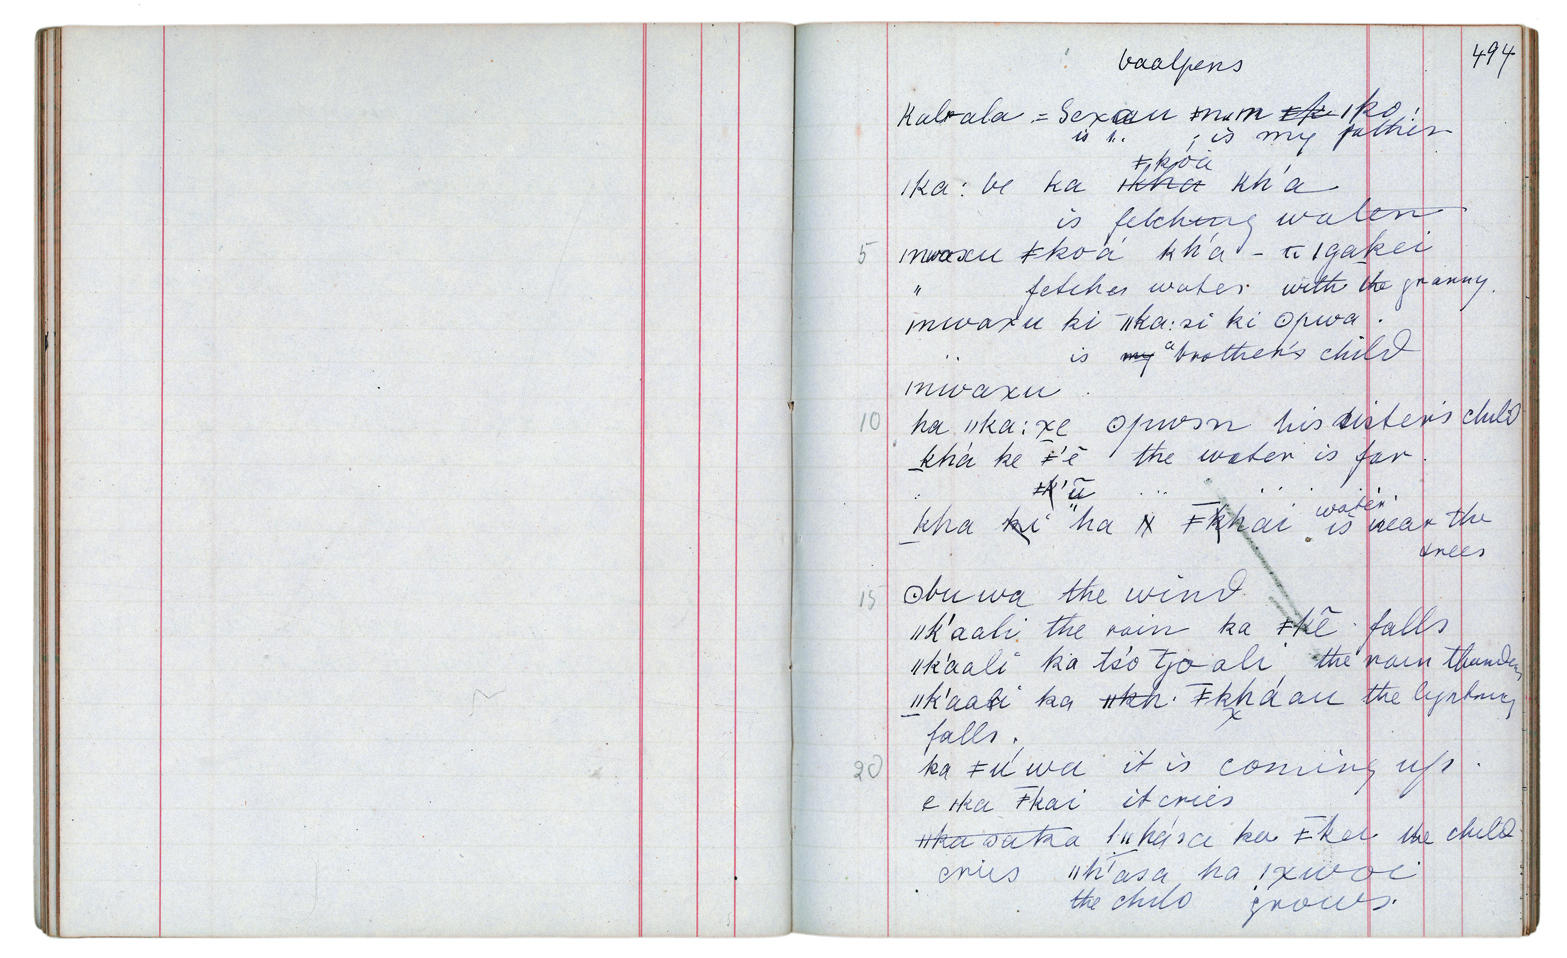 vaalpens 494
Kabala = Sexau ǂnum ǀko,
is h. ; is my father
ǂkoá
ǀka: be ka ǀkha kh'a
is fetching water
5 ǀnwaxu ǂkoá kh'a - π ǀgakei
" fetches water with the granny.
ǀnwaxu ki ǁka:si ki ʘpwa.
is my a brother's child
ǀnwaxu
10 ha ǁka:xe ʘpwon his sister's child
khá ke ǂ'ē the water is far.
ǂk'ū
kha ki "ha ǂkhai water is near the
trees
15 ʘbuwa the wind
ǁk'aali the rain ka ǂkē falls
ǁk'aali ka ts'o Tjoali the rain thunders
ǁk'aali ka ǁkh. ǂkháau the lightning
x
falls.
20 ka ǂú wa it is coming up.
e ǀka ǂkai it cries
ǁka saka ǁkása ka ǂkai the child
cries ǁk'asa ka ǃxwoi
the child grows.